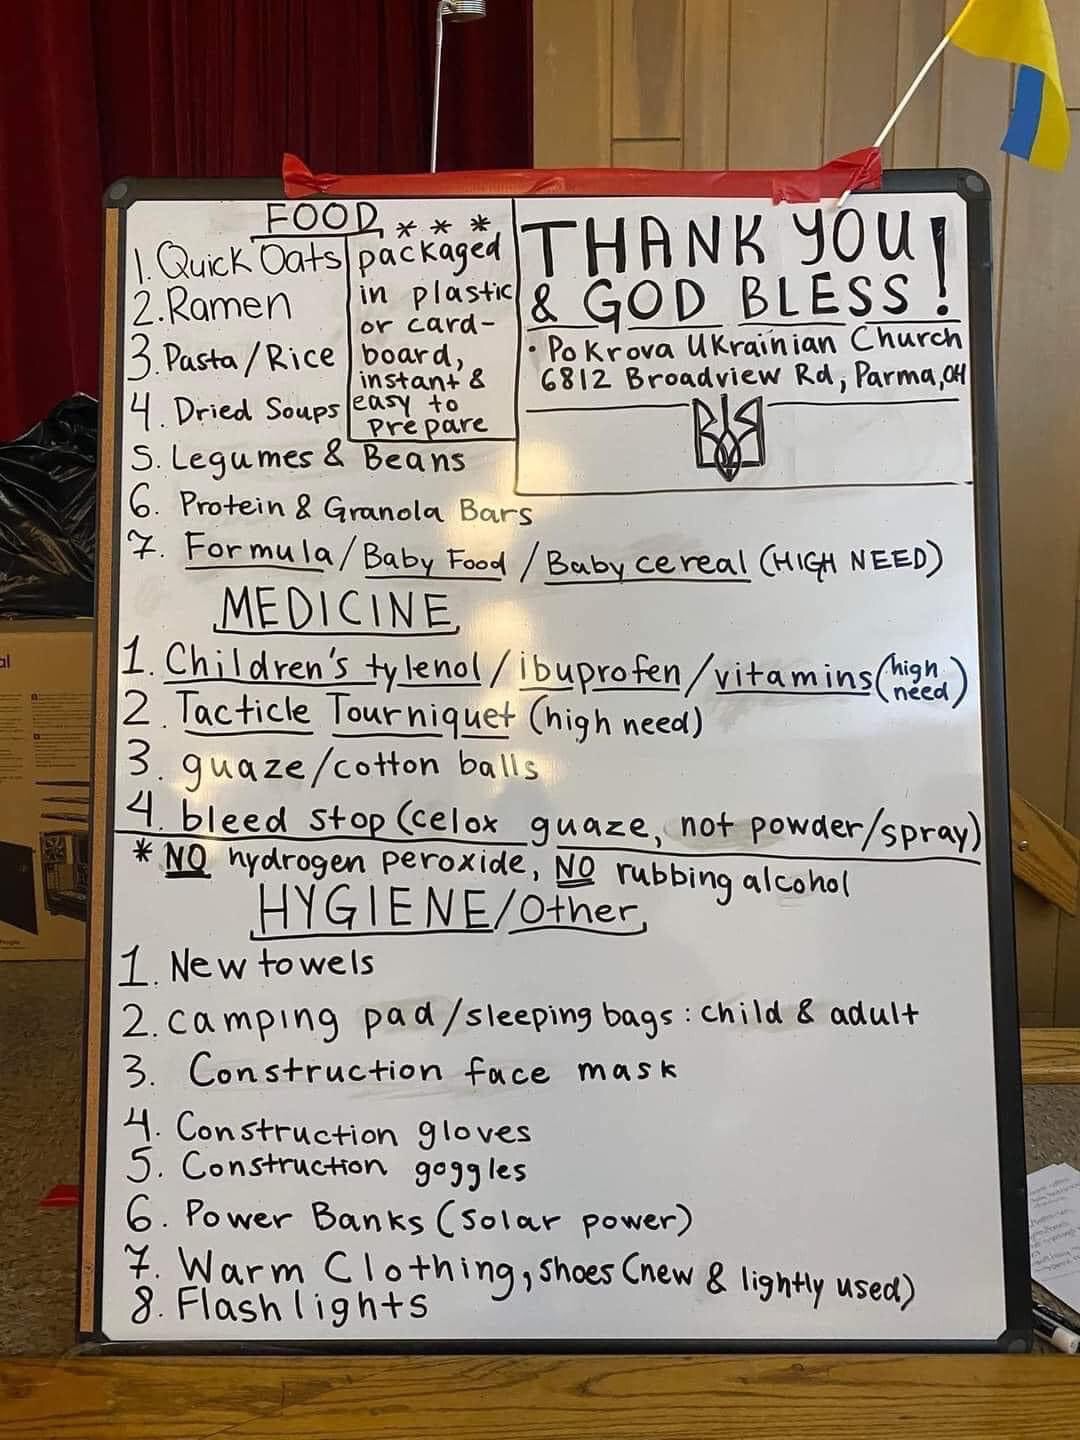 FOOD
1. Quick Oats
2. Ramen
3. Pasta/Rice
4. Dried Soups
* * *
packaged
in plastic
or card-
board,
instant &
easy to
prepare
5. Legumes & Beans
6. Protein & Granola Bars
7. Formula/Baby Food/Baby cereal (HIGH NEED)
THANK YOU!
& GOD BLESS!
• Pokrova Ukrainian Church
6812 Broadview Rd, Parma, OH
MEDICINE
1. Children's tylenol/ibuprofen/vitamins (high need)
2. Tacticle Tourniquet (high need)
3. guaze/cotton balls
4. bleed stop (celox guaze, not powder/spray)
* NO hydrogen peroxide, NO rubbing alcohol
HYGIENE/Other
1. New towels
2. camping pad/sleeping bags: child & adult
3. Construction face mask
4. Construction gloves
5. Construction goggles
6. Power Banks (solar power)
7. Warm Clothing, shoes (new & lightly used)
8. Flashlights